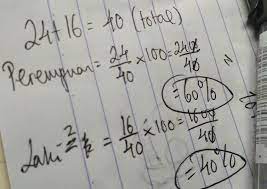 24+16 = 40 (total)
Perempuan = 24/40 × 100 = 2400/40
= 60%
Laki-2 = 16/40 × 100 = 1600/40
= 40%